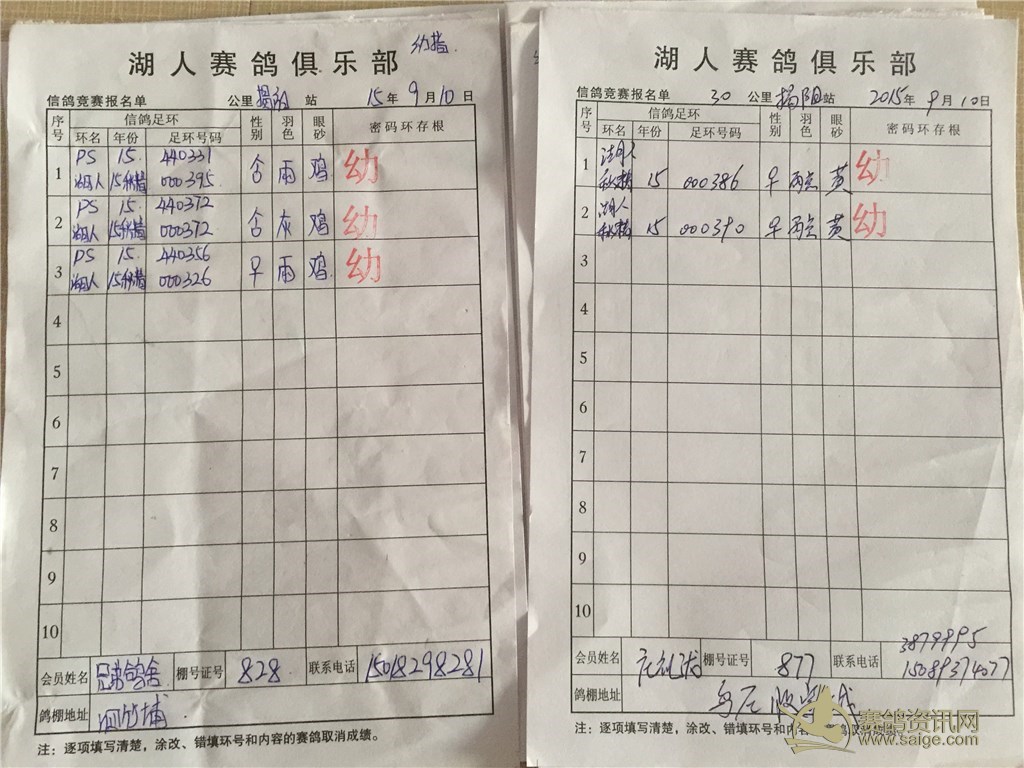 幼鸽
湖人赛鸽俱乐部
信鸽竞赛报名单 公里 揭阳 站 15年9月10日
序号 信鸽足环 性别 羽色 眼砂 密码环存根
环名 年份 足环号码
1 PS 15. 440331 雨 鸡 幼
湖人 15秋 000395
2 PS 15. 440372 灰 鸡 幼
湖人 15秋 000372
3 PS 15. 440356 雨 鸡 幼
湖人 15秋 000326
4
5
6
7
8
9
10
会员姓名 兄弟鸽舍 棚号证号 828 联系电话 15018298281
鸽棚地址 埔
注:逐项填写清楚,涂改、错填环号和内容的赛鸽取消成绩。
湖人赛鸽俱乐部
信鸽竞赛报名单 30 公里 揭阳 站 2015年9月10日
序号 信鸽足环 性别 羽色 眼砂 密码环存根
环名 年份 足环号码
1 湖人 15 000386 雨点 黄 幼
2 湖人 15 000390 雨点 黄 幼
3
4
5
6
7
8
9
10
3879995
会员姓名 棚号证号 877 联系电话 15089374077
鸽棚地址
注:逐项填写清楚,涂改、错填环号和内容
赛鸽资讯网
www.saige.com